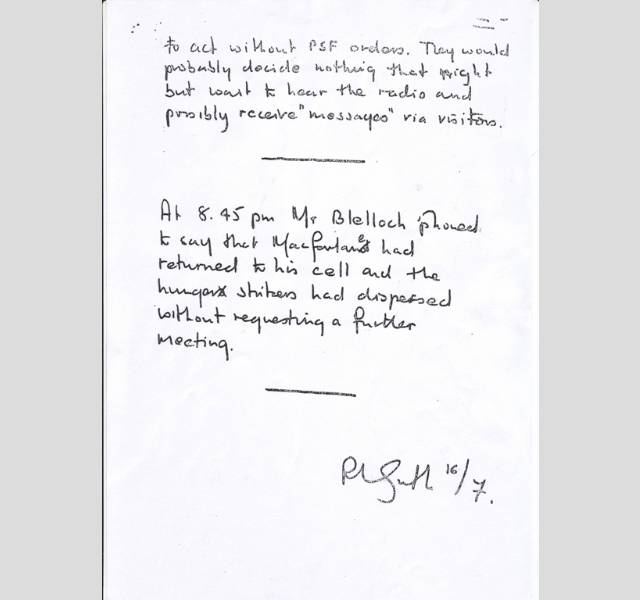 to act without PSF orders. They would
probably decide nothing that night
but want to hear the radio and
possibly receive "messages" via visitors.
At 8.45 pm Mr Blelloch 'phoned
to say that MacFarlane had
returned to his cell and the
hunger strikers had dispersed
without requesting a further
meeting.
16/7.